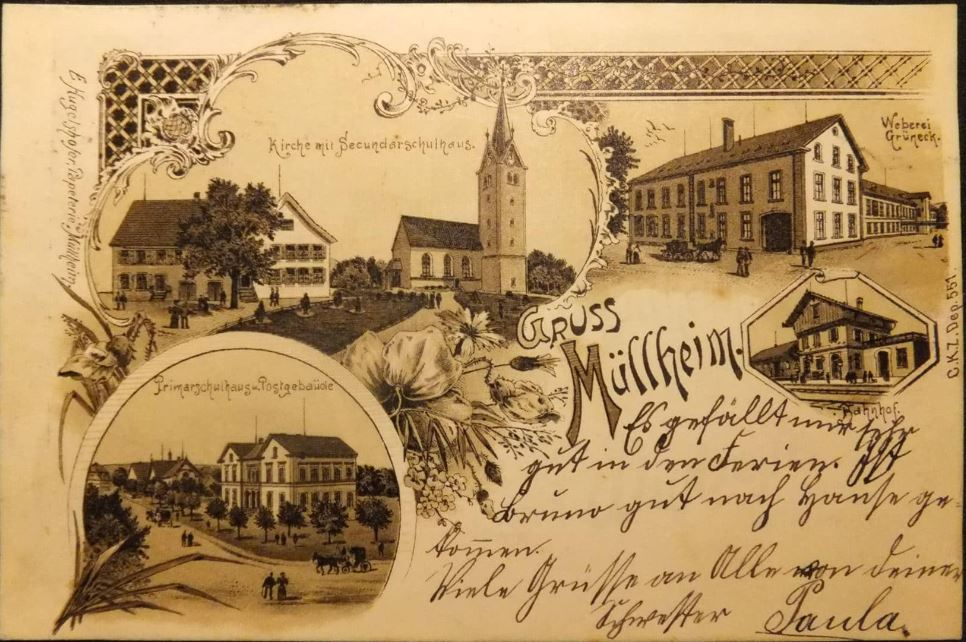 Kirche mit Secundarschulhaus.
Weberei
Grüneck.
Gruss
Müllheim.
Bahnhof.
Primarschulhaus u. Postgebäude
Papeterie Müllheim.
C.K.Z. Dep. 551.
Es gefällt mir sehr
gut in den Ferien. Ist
Bruno gut nach Hause ge-
kommen.
Viele Grüsse an Alle von deiner
Schwester Paula.